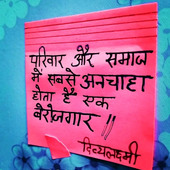 परिवार और समाज
में सबसे अनचाहा
होता है एक
बेरोजगार !!
दिव्यलक्ष्मी